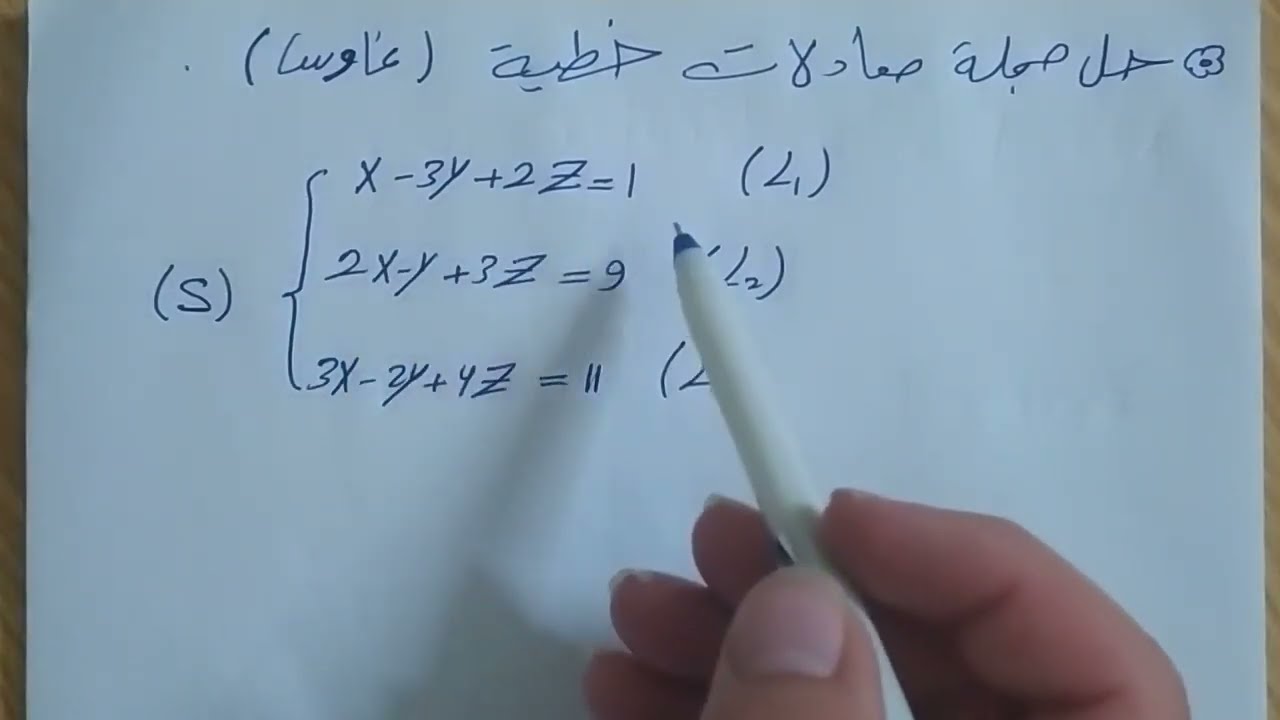 حل جملة معادلات خطية (غاوس) .
X - 3y + 2Z = 1 (L₁)
(S) { 2X - y + 3Z = 9 (L₂)
3X - 2y + 4Z = 11 (L